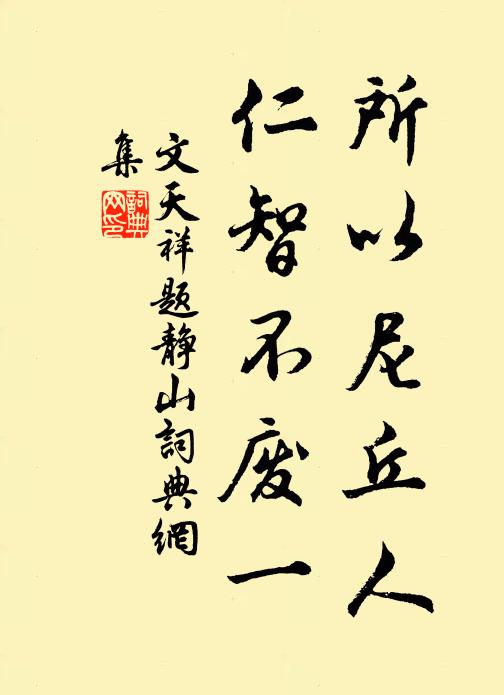 所以尼丘人
仁智不废一
文天祥题静山詞典網
集
詞典
网印